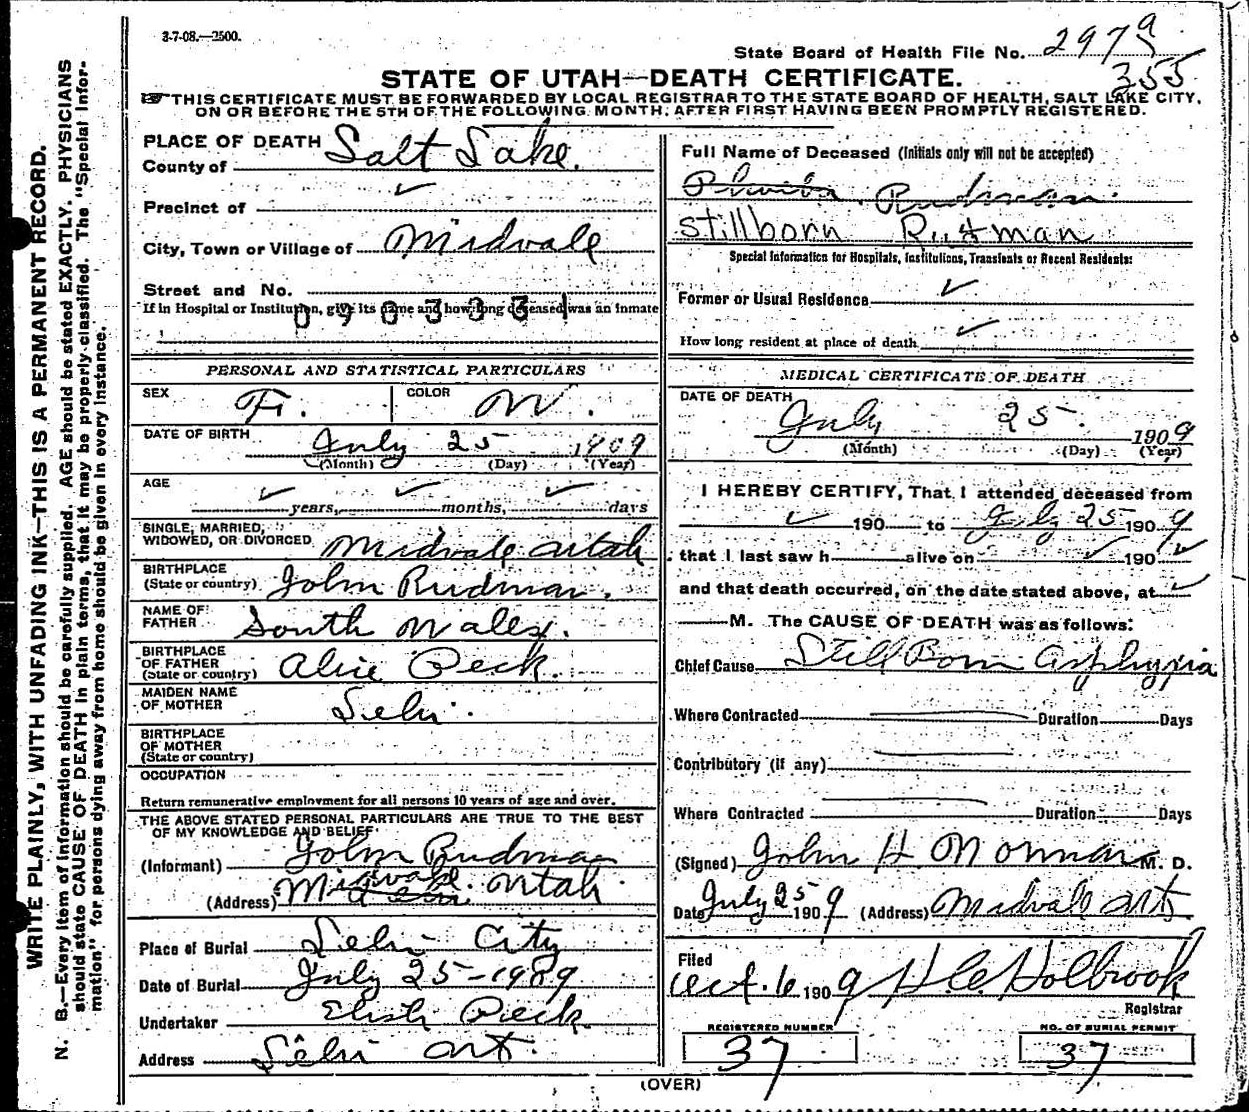 3-7-08.—2500.
State Board of Health File No. 2979
355
STATE OF UTAH—DEATH CERTIFICATE.
THIS CERTIFICATE MUST BE FORWARDED BY LOCAL REGISTRAR TO THE STATE BOARD OF HEALTH, SALT LAKE CITY,
ON OR BEFORE THE 5TH OF THE FOLLOWING MONTH, AFTER FIRST HAVING BEEN PROMPTLY REGISTERED.
WRITE PLAINLY, WITH UNFADING INK—THIS IS A PERMANENT RECORD.
N. B.—Every item of information should be carefully supplied. AGE should be stated EXACTLY. PHYSICIANS
should state CAUSE OF DEATH in plain terms, that it may be properly classified. The "Special Infor-
mation" for persons dying away from home should be given in every instance.
PLACE OF DEATH
County of Salt Lake.
Precinct of
City, Town or Village of Midvale
Street and No.
If in Hospital or Institution, give its name and how long deceased was an inmate
0903331
PERSONAL AND STATISTICAL PARTICULARS
SEX F. COLOR W.
DATE OF BIRTH July 25 1909
(Month) (Day) (Year)
AGE
years, months, days
SINGLE, MARRIED,
WIDOWED, OR DIVORCED Midvale Utah
BIRTHPLACE
(State or country) John Rudman.
NAME OF
FATHER South Wales.
BIRTHPLACE
OF FATHER
(State or country) Alice Peck.
MAIDEN NAME
OF MOTHER Lehi.
BIRTHPLACE
OF MOTHER
(State or country)
OCCUPATION
Return remunerative employment for all persons 10 years of age and over.
THE ABOVE STATED PERSONAL PARTICULARS ARE TRUE TO THE BEST
OF MY KNOWLEDGE AND BELIEF.
(Informant) John Rudman
(Address) Midvale. Utah.
Place of Burial Lehi City
Date of Burial July 25-1909
Undertaker Peck.
Address Lehi Ut.
Full Name of Deceased (Initials only will not be accepted)
Rudman.
Stillborn Rutman
Special Information for Hospitals, Institutions, Transients or Recent Residents:
Former or Usual Residence
How long resident at place of death
MEDICAL CERTIFICATE OF DEATH
DATE OF DEATH
July 25. 1909
(Month) (Day) (Year)
I HEREBY CERTIFY, That I attended deceased from
190 to July 25 1909
that I last saw h alive on 190
and that death occurred, on the date stated above, at
M. The CAUSE OF DEATH was as follows:
Chief Cause Still Born Asphyxia
Where Contracted Duration Days
Contributory (if any)
Where Contracted Duration Days
(Signed) John H Norman M. D.
Date July 25 1909 (Address) Midvale Ut
Filed
Oct. 6 1909 H.C. Holbrook
Registrar
REGISTERED NUMBER NO. OF BURIAL PERMIT
37 37
(OVER)